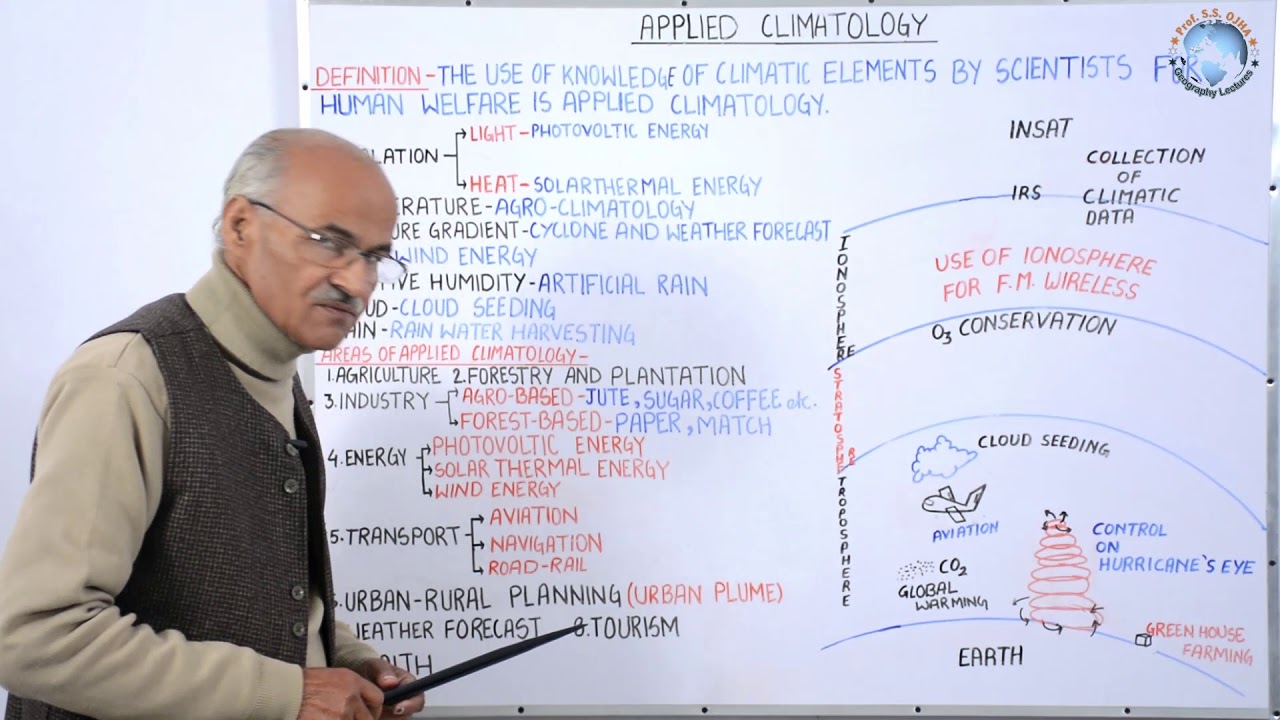 APPLIED CLIMATOLOGY
Prof. S.S. OJHA
Geography Lectures
DEFINITION-THE USE OF KNOWLEDGE OF CLIMATIC ELEMENTS BY SCIENTISTS FOR
HUMAN WELFARE IS APPLIED CLIMATOLOGY.
LATION
LIGHT-PHOTOVOLTIC ENERGY
HEAT-SOLARTHERMAL ENERGY
ERATURE-AGRO-CLIMATOLOGY
URE GRADIENT-CYCLONE AND WEATHER FORECAST
WIND ENERGY
IVE HUMIDITY-ARTIFICIAL RAIN
UD-CLOUD SEEDING
AIN-RAIN WATER HARVESTING
AREAS OF APPLIED CLIMATOLOGY-
1.AGRICULTURE 2.FORESTRY AND PLANTATION
3.INDUSTRY
AGRO-BASED-JUTE,SUGAR,COFFEE etc.
FOREST-BASED-PAPER,MATCH
4.ENERGY
PHOTOVOLTIC ENERGY
SOLAR THERMAL ENERGY
WIND ENERGY
5.TRANSPORT
AVIATION
NAVIGATION
ROAD-RAIL
URBAN-RURAL PLANNING(URBAN PLUME)
WEATHER FORECAST 8.TOURISM
LTH
INSAT
IRS
COLLECTION
OF
CLIMATIC
DATA
IONOSPHERE
USE OF IONOSPHERE
FOR F.M. WIRELESS
O3 CONSERVATION
STRATOSPHERE
CLOUD SEEDING
TROPOSPHERE
AVIATION
CO2
GLOBAL
WARMING
CONTROL
ON
HURRICANE'S EYE
GREEN HOUSE
FARMING
EARTH